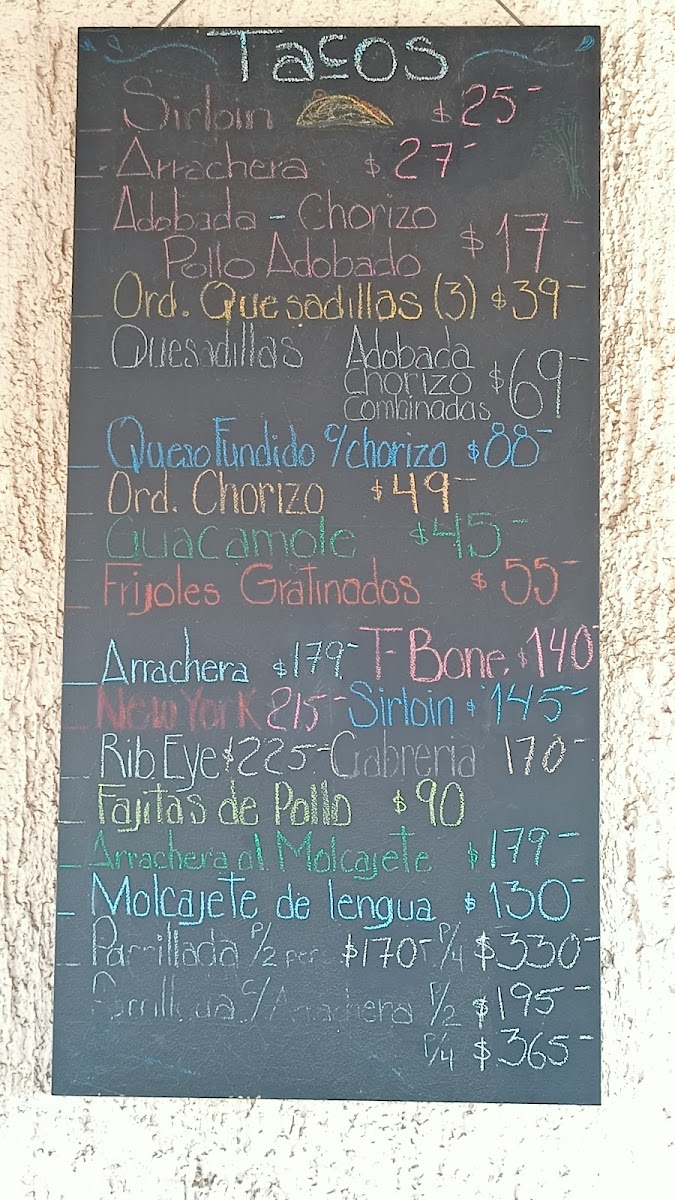 Tacos
Sirloin $25-
Arrachera $27-
Adobada - Chorizo
Pollo Adobado $17-
Ord. Quesadillas (3) $39-
Quesadillas Adobada
Chorizo $69-
Combinadas
Queso Fundido c/chorizo $88-
Ord. Chorizo $49-
Guacamole $45-
Frijoles Gratinados $55-
Arrachera $179- T-Bone. $140-
New York 215- Sirloin $145-
Rib Eye $225- Cabreria 170-
Fajitas de Pollo $90
Arrachera al Molcajete $179-
Molcajete de lengua $130-
Parrillada P/2 per $170- P/4 $330-
Parrillada c/Arrachera P/2 $195-
P/4 $365-